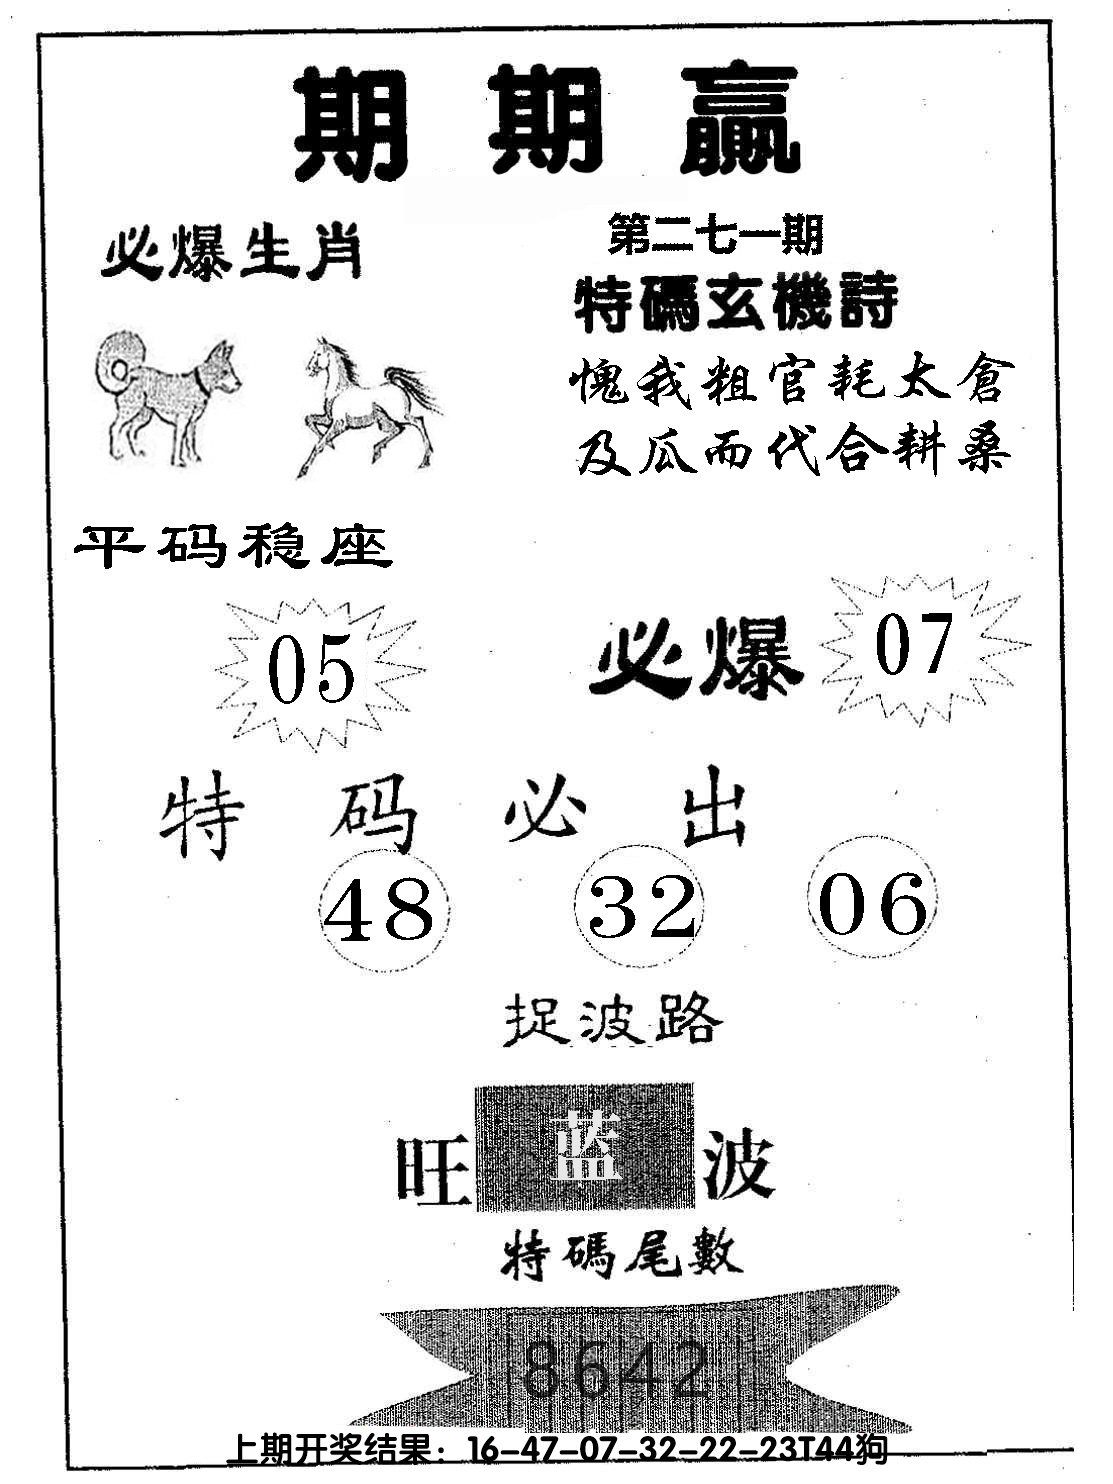 期期赢
必爆生肖
第二七一期
特碼玄機詩
愧我粗官耗太倉
及瓜而代合耕桑
平码稳座
05
必爆 07
特码必出
48 32 06
捉波路
旺 蓝 波
特碼尾數
8642
上期开奖结果：16-47-07-32-22-23T44狗